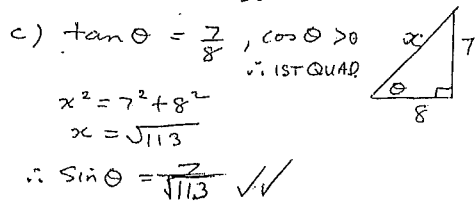 c) tan θ = 7/8 , cos θ >0
∴ 1ST QUAD.
x² = 7² + 8²
x = √113
∴ sin θ = 7/√113 ✓✓
x
7
θ
8